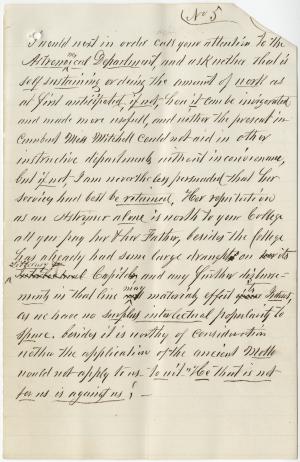 (No 5
I would next in order call your attention to the
Astronomical Department, and ask wether that is
self sustaining or doing the amount of work as
at first anticipated, if not, how it can be invigorated
and made more usefull, and wether the present in-
cumbent Miss Mitchell could not aid in other
instructive departments without inconvenance,
but if not, I am never the less persuaded that her
services had best be retained, Her reputation
as an Astromer alone is worth to your College
all you pay her & her Father, besides the College
has already had some large draughts on its
Capital and any further disburse-
ments in that line may materialy effect its
as we have no surplus intelectual popularity to
spare. besides it is worthy of consideration
wether the application of the ancient Motto
would not apply to us. to wit "He that is not
for us is against us; —